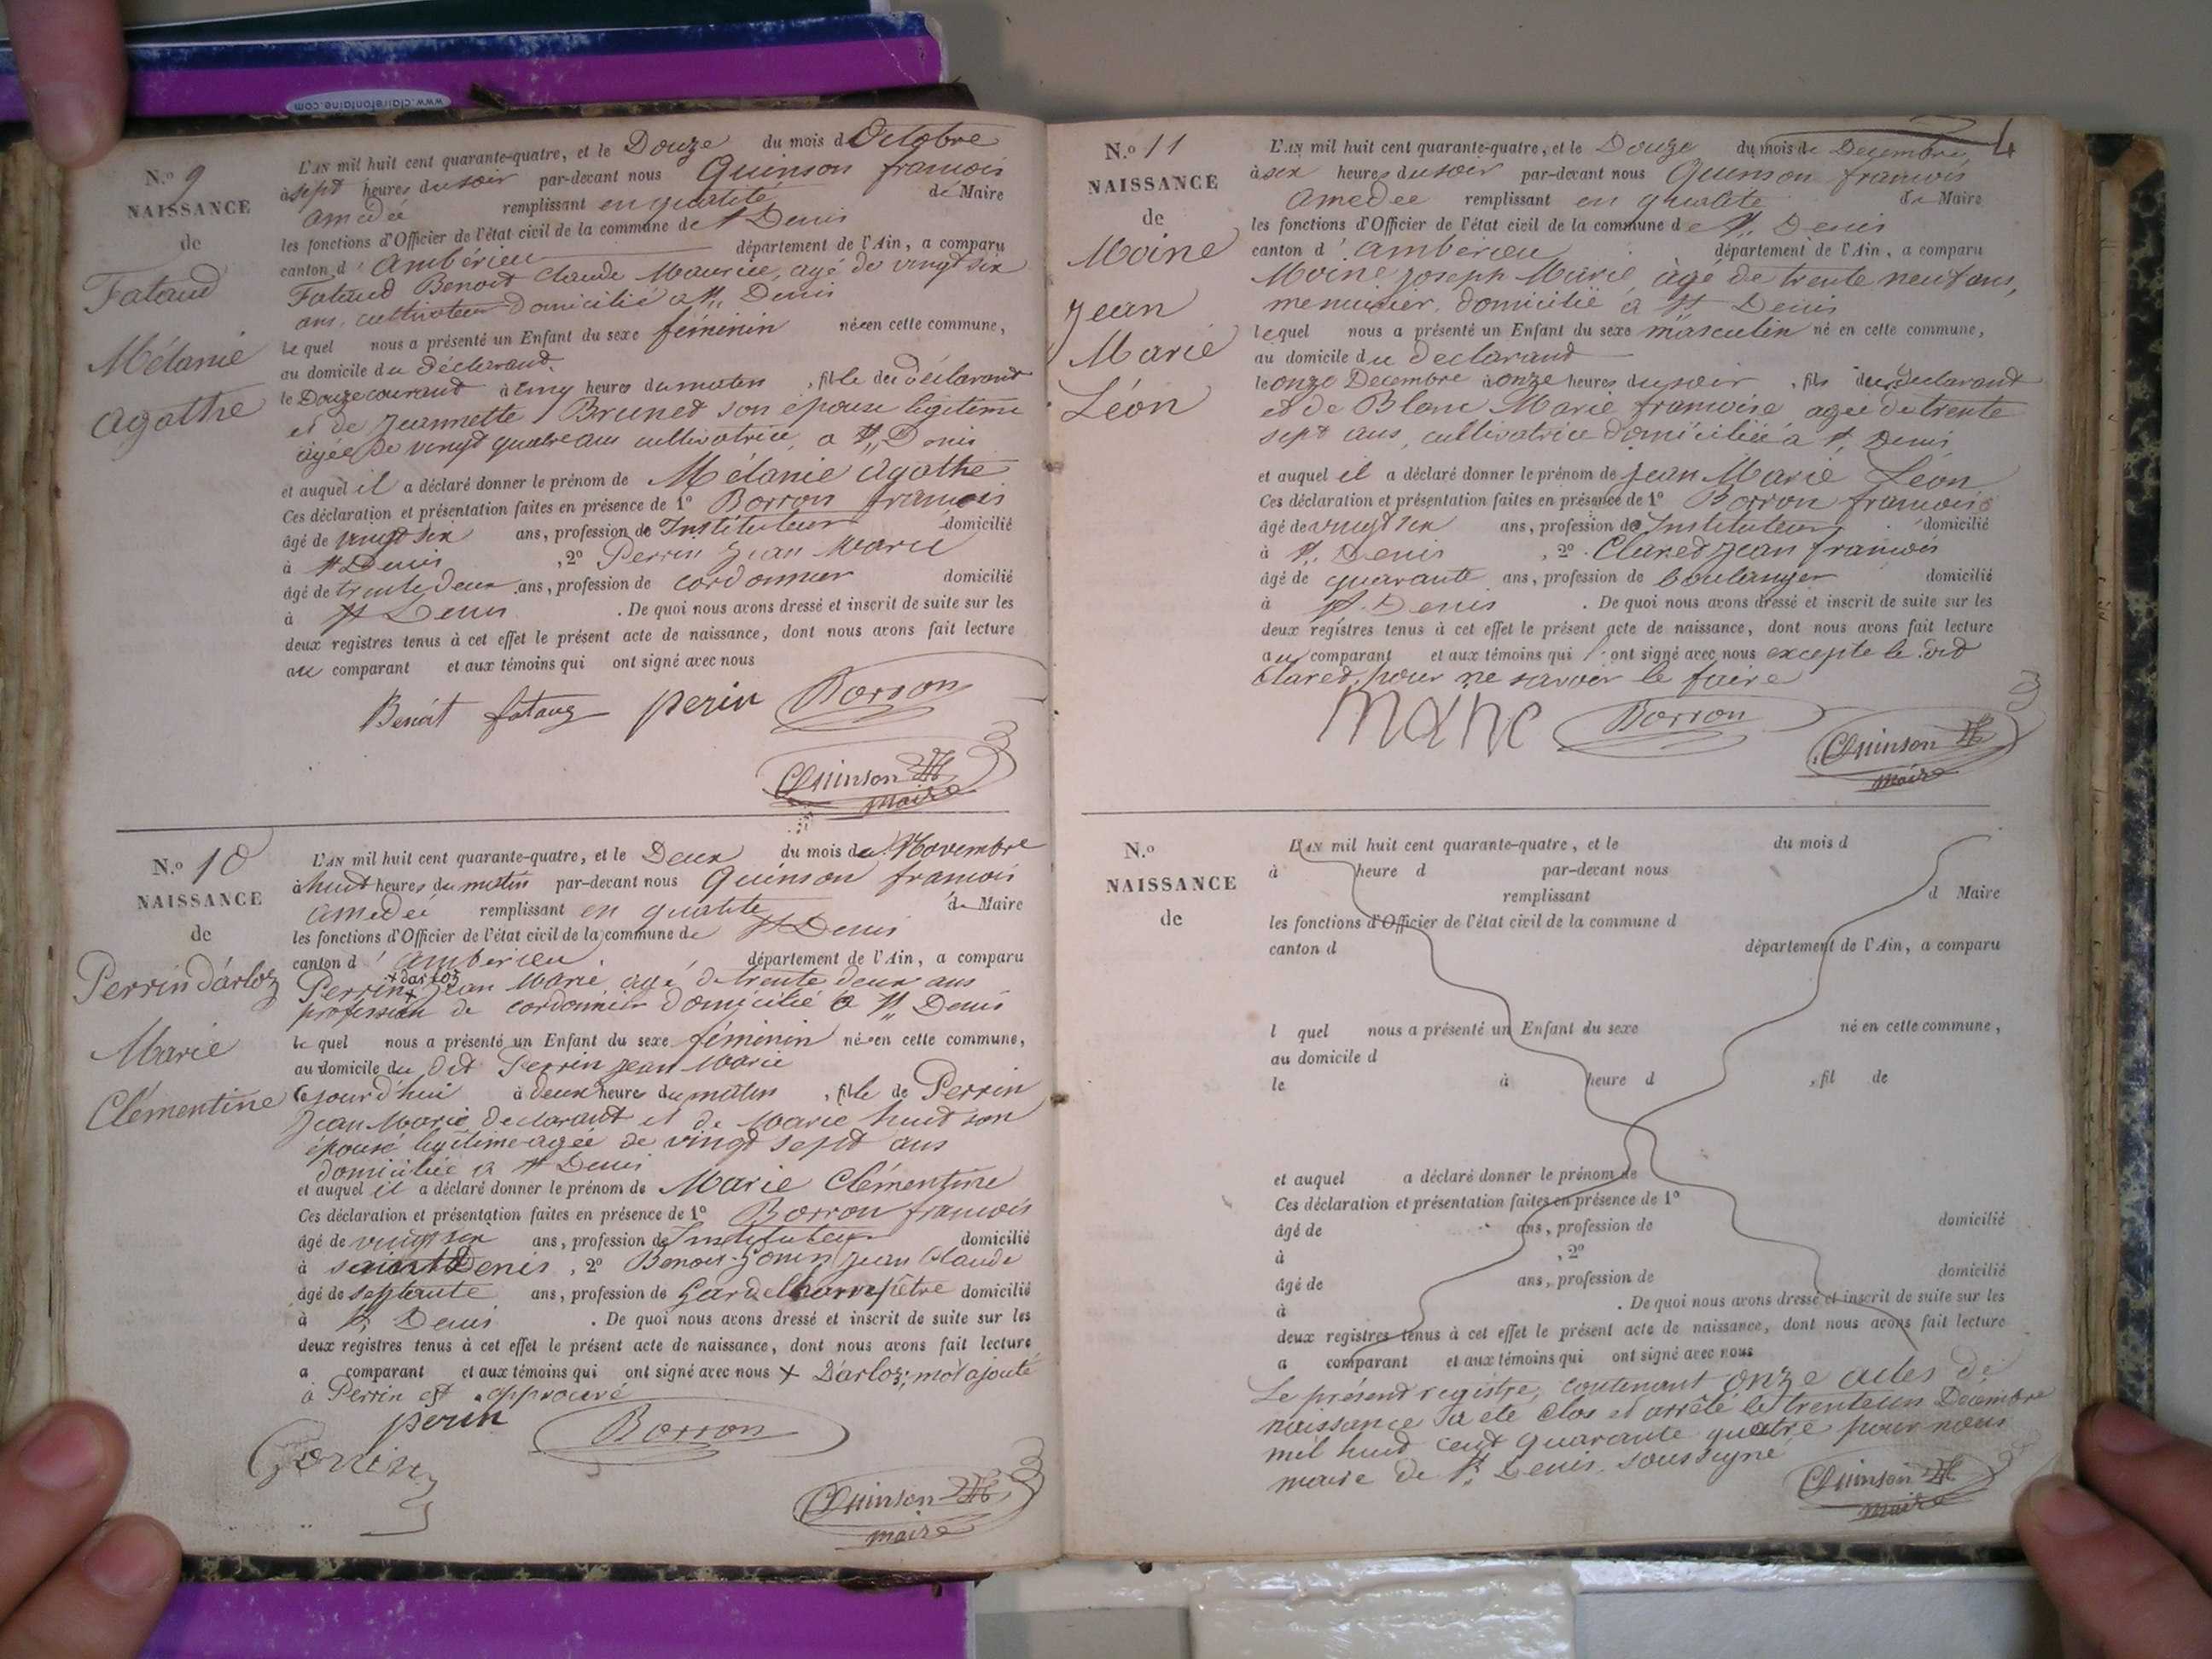 www.clairefontaine.com
N.º 9
NAISSANCE
de
Fataud
Mélanie
Agathe
L'AN mil huit cent quarante-quatre, et le Douze du mois d'Octobre
à sept heures du soir par-devant nous Quinson francois
amédée remplissant en qualité de Maire
les fonctions d'Officier de l'état civil de la commune de St Denis
canton d'ambérieu département de l'Ain, a comparu
Fataud Benoit Claude Maurice, agé de vingt six
ans, cultivateur domicilié a St Denis
le quel nous a présenté un Enfant du sexe féminin née en cette commune,
au domicile du déclarand.
le Douze courand à cinq heures du matin, fille du déclarand
et de Jeannette Brunet son épouse légitime
agée de vingt quatre ans cultivatrice, a St Denis
et auquel il a déclaré donner le prénom de Mélanie Agathe
Ces déclaration et présentation faites en présence de 1º Borron francois
âgé de vingt six ans, profession de Instituteur domicilié
à St Denis, 2º Perrin Jean Marie
âgé de trente deux ans, profession de cordonnier domicilié
à St Denis. De quoi nous avons dressé et inscrit de suite sur les
deux registres tenus à cet effet le présent acte de naissance, dont nous avons fait lecture
au comparant et aux témoins qui ont signé avec nous
Benoit fataud perin Borron
Quinson
maire
N.º 10
NAISSANCE
de
Perrin d'arloz
Marie
Clémentine
L'AN mil huit cent quarante-quatre, et le Deux du mois de Novembre
à huit heures du matin par-devant nous Quinson francois
amedée remplissant en qualité de Maire
les fonctions d'Officier de l'état civil de la commune de St Denis
canton d'ambérieu, département de l'Ain, a comparu
+ darloz
Perrin + Jean Marie agé de trente deux ans
profession de cordonnier domicilié a St Denis
le quel nous a présenté un Enfant du sexe féminin née en cette commune,
au domicile du dit Perrin Jean Marie
le jourd'hui à deux heures du matin, fille de Perrin
Jean Marie declarant et de Marie huit son
épouse légitime agée de vingt sept ans
domiciliée a St Denis
et auquel il a déclaré donner le prénom de Marie Clémentine
Ces déclaration et présentation faites en présence de 1º Borron francois
âgé de vingt six ans, profession de Instituteur domicilié
à saint Denis, 2º Benoit-Gonin Jean Claude
âgé de septente ans, profession de Garde Champêtre domicilié
à St Denis. De quoi nous avons dressé et inscrit de suite sur les
deux registres tenus à cet effet le présent acte de naissance, dont nous avons fait lecture
a comparant et aux témoins qui ont signé avec nous + D'arloz, mot ajouté
à Perrin est approuvé
perin Borron
Gonin
Quinson
maire
4
N.º 11
NAISSANCE
de
Moine
Jean
Marie
Léon
L'AN mil huit cent quarante-quatre, et le Douze du mois de Decembre,
à six heures du soir par-devant nous Quinson francois
Amedée remplissant en qualité de Maire
les fonctions d'Officier de l'état civil de la commune de St Denis
canton d'ambérieu département de l'Ain, a comparu
Moine Joseph Marie, âgé de trente neuf ans,
menuisier, domicilié a St Denis
lequel nous a présenté un Enfant du sexe masculin né en cette commune,
au domicile du declarand
le onze Decembre à onze heures du soir, fils du declarand
et de Blanc Marie francoise agée de trente
sept ans, cultivatrice domiciliée a St Denis
et auquel il a déclaré donner le prénom de Jean Marie Léon
Ces déclaration et présentation faites en présence de 1º Borron francois
âgé de vingt six ans, profession de Instituteur domicilié
à St Denis, 2º Claret Jean francois
âgé de quarante ans, profession de boulanger domicilié
à St Denis. De quoi nous avons dressé et inscrit de suite sur les
deux registres tenus à cet effet le présent acte de naissance, dont nous avons fait lecture
au comparant et aux témoins qui ont signé avec nous excepté le dit
Claret, pour ne savoir le faire
Borron
Quinson
maire
N.º
NAISSANCE
de
L'AN mil huit cent quarante-quatre, et le du mois d
à heure d par-devant nous
remplissant d Maire
les fonctions d'Officier de l'état civil de la commune d
canton d département de l'Ain, a comparu
l quel nous a présenté un Enfant du sexe né en cette commune,
au domicile d
le à heure d, fil de
et auquel a déclaré donner le prénom de
Ces déclaration et présentation faites en présence de 1º
âgé de ans, profession de domicilié
à, 2º
âgé de ans, profession de domicilié
à. De quoi nous avons dressé et inscrit de suite sur les
deux registres tenus à cet effet le présent acte de naissance, dont nous avons fait lecture
a comparant et aux témoins qui ont signé avec nous
Le présend registre, contenant onze actes de
naissance a été clos et arrêté le trente un Decembre
mil huit cent quarante quatre pour nous
maire de St Denis, soussigné
Quinson
maire